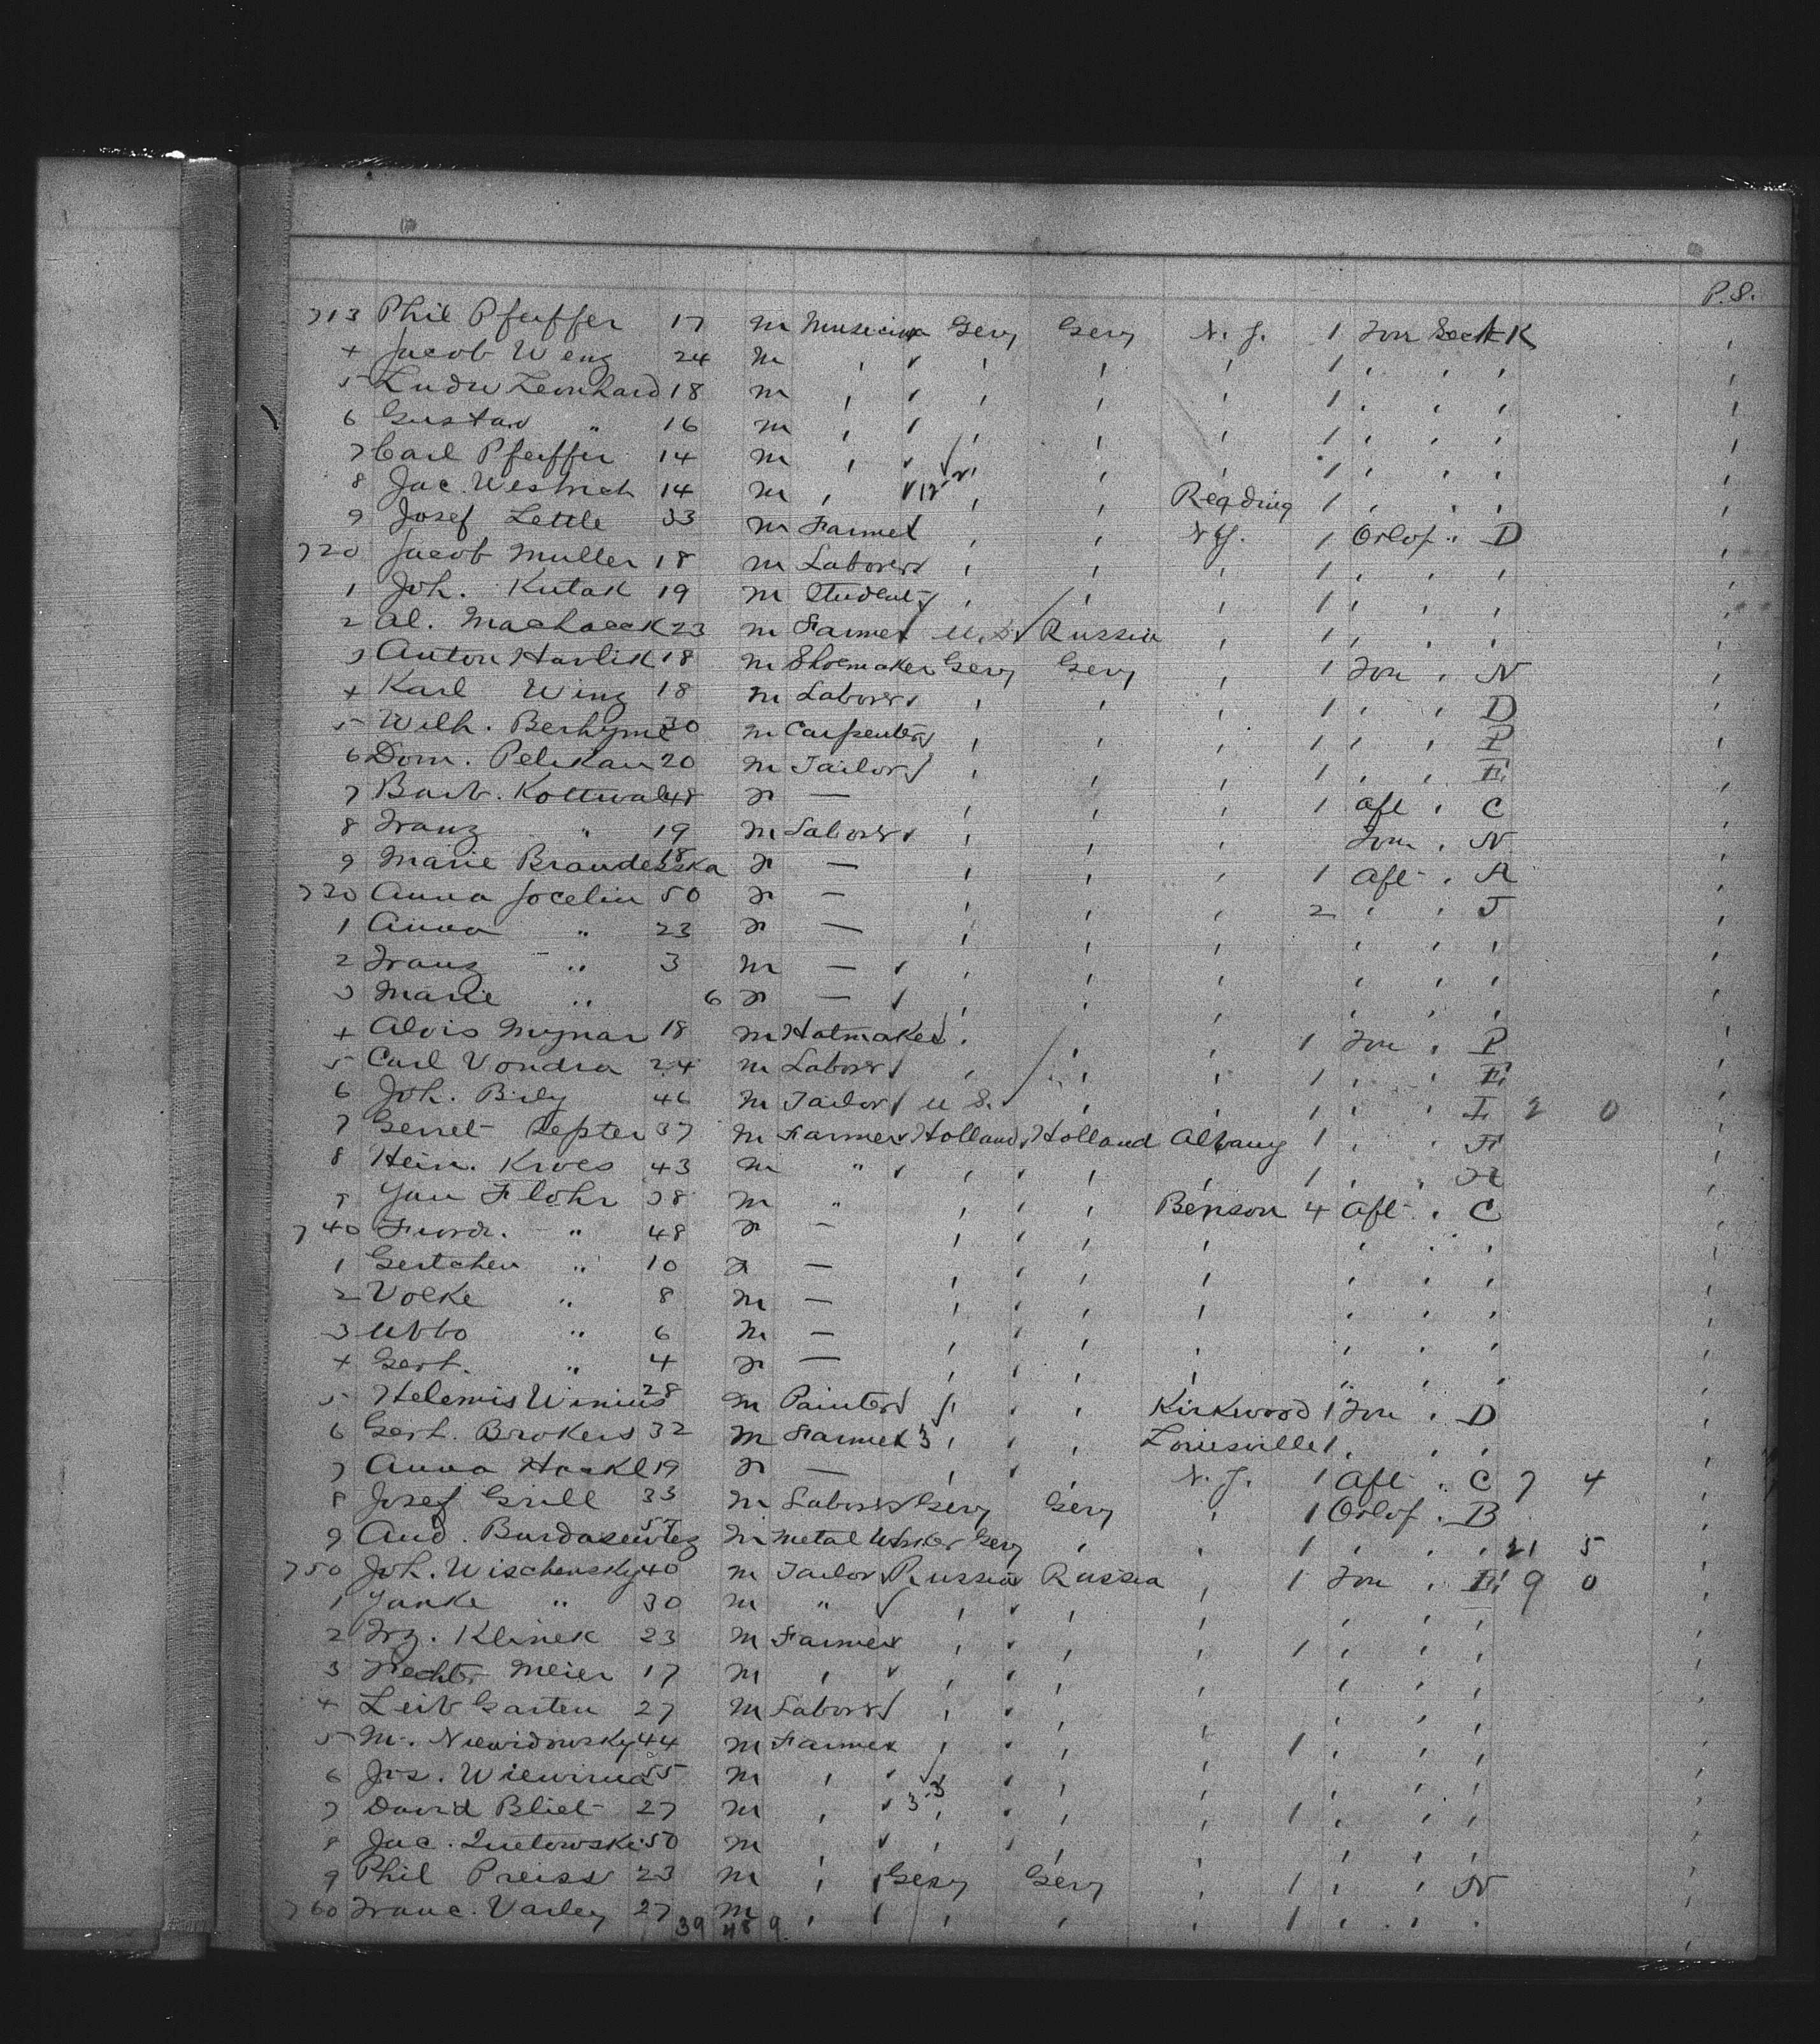 P.S.
713 Phil Pfeiffer 17 m Musician Gery Gery N.Y. 1 For Sect K
4 Jacob Weng 24 m , , , , 1 , , ,
5 Ludw Leonhard 18 m , , , , 1 , , ,
6 Gustav " 16 m , , , , 1 , , ,
7 Carl Pfeiffer 14 m , , , , 1 , , ,
8 Jac. Westrich 14 m , , , Reading 1 , , ,
9 Josef Lettle 33 m Farmer , , N.Y. 1 Orlof . D
720 Jacob Muller 18 m Laborer , , , 1 , , ,
1 Joh. Kutak 19 m Student , , , 1 , , ,
2 Al. Machacek 23 m Farmer U.S. Russia , 1 , , ,
3 Anton Havlik 18 m Shoemaker Gery Gery , 1 For , N
4 Karl Wing 18 m Laborer , , , 1 , , D
5 Wilh. 30 m Carpenter , , , 1 , , P
6 Dom. Pelikan 20 m Tailor , , , 1 , , E
7 Barb. 48 f — , , , 1 Aft , C
8 Franz " 19 m Laborer , , , For , N
9 Marie 18 f — , , , 1 Aft , A
730 Anna Jocelin 50 f — , , , 2 , , J
1 Anna " 23 f — , , , , , ,
2 Franz " 3 m — , , , , , ,
3 Marie " 6 f — , , , , , ,
4 Alois Mynar 18 m Hatmaker , , , 1 For , P
5 Carl Vondra 24 m Laborer , , , 1 , , E
6 Joh. Bily 46 m Tailor U S. , , 1 , , I 2 0
7 Gerret Septer 37 m Farmer Holland Holland Albany 1 , , H
8 Hein. Kroes 43 m " , , , 1 , , H
9 Jan Flohr 38 m " , , Benson 4 Aft . C
740 " 48 f — , , , , , ,
1 Gertchen " 10 f — , , , , , ,
2 Volke " 8 m — , , , , , ,
3 Ubbo " 6 m — , , , , , ,
4 Gert. " 4 f — , , , , , ,
5 Helemis Winius 28 m Painter , , Kirkwood 1 For . D
6 Gert. Brokers 32 m Farmer 3 , , Louisville 1 , , ,
7 Anna 19 f — , , N.Y. 1 Aft . C 7 4
8 Josef Grill 33 m Laborer Gery Gery , 1 Orlof . B
9 And. m Metal Worker Gery , , 1 , , , 21 5
750 Joh. Wischensky 40 m Tailor Russia Russia , 1 For . E 9 0
1 Janke " 30 m " , , , , , ,
2 Frz. Klinek 23 m Farmer , , , 1 , , ,
3 Meier 17 m , , , , , , ,
4 Leib Garten 27 m Laborer , , , , , ,
5 M. 44 m Farmer , , , 1 , , ,
6 Jos. 55 m , , , , , , ,
7 David Bliet 27 m , 3-3 , , , 1 , , ,
8 Jac. 50 m , , , , , ,
9 Phil Preiss 23 m , Gery Gery , 1 , , N
760 Franc. Varley 27 m , , , , 1 , , .
39 48 9